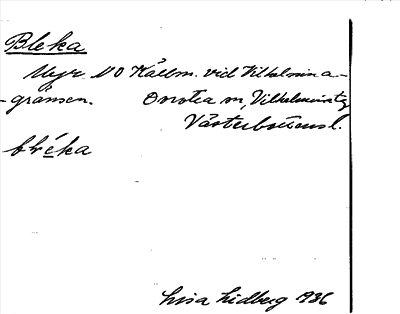 Bleka
Myr NO Källm. vid Vilhelmina-
-gränsen. Dorotea sn, Vilhelmina tg
Västerbottensl.
bléka
Lisa Lidberg 1936